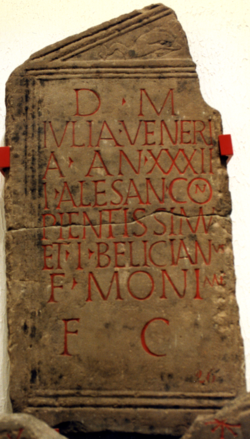 D · M
IVLIA·VENERI
A · AN·XXXII
I·ALESAN·CON
PIENTISSIMA
ET·I·BELICIANVS
F·MONIME
F C